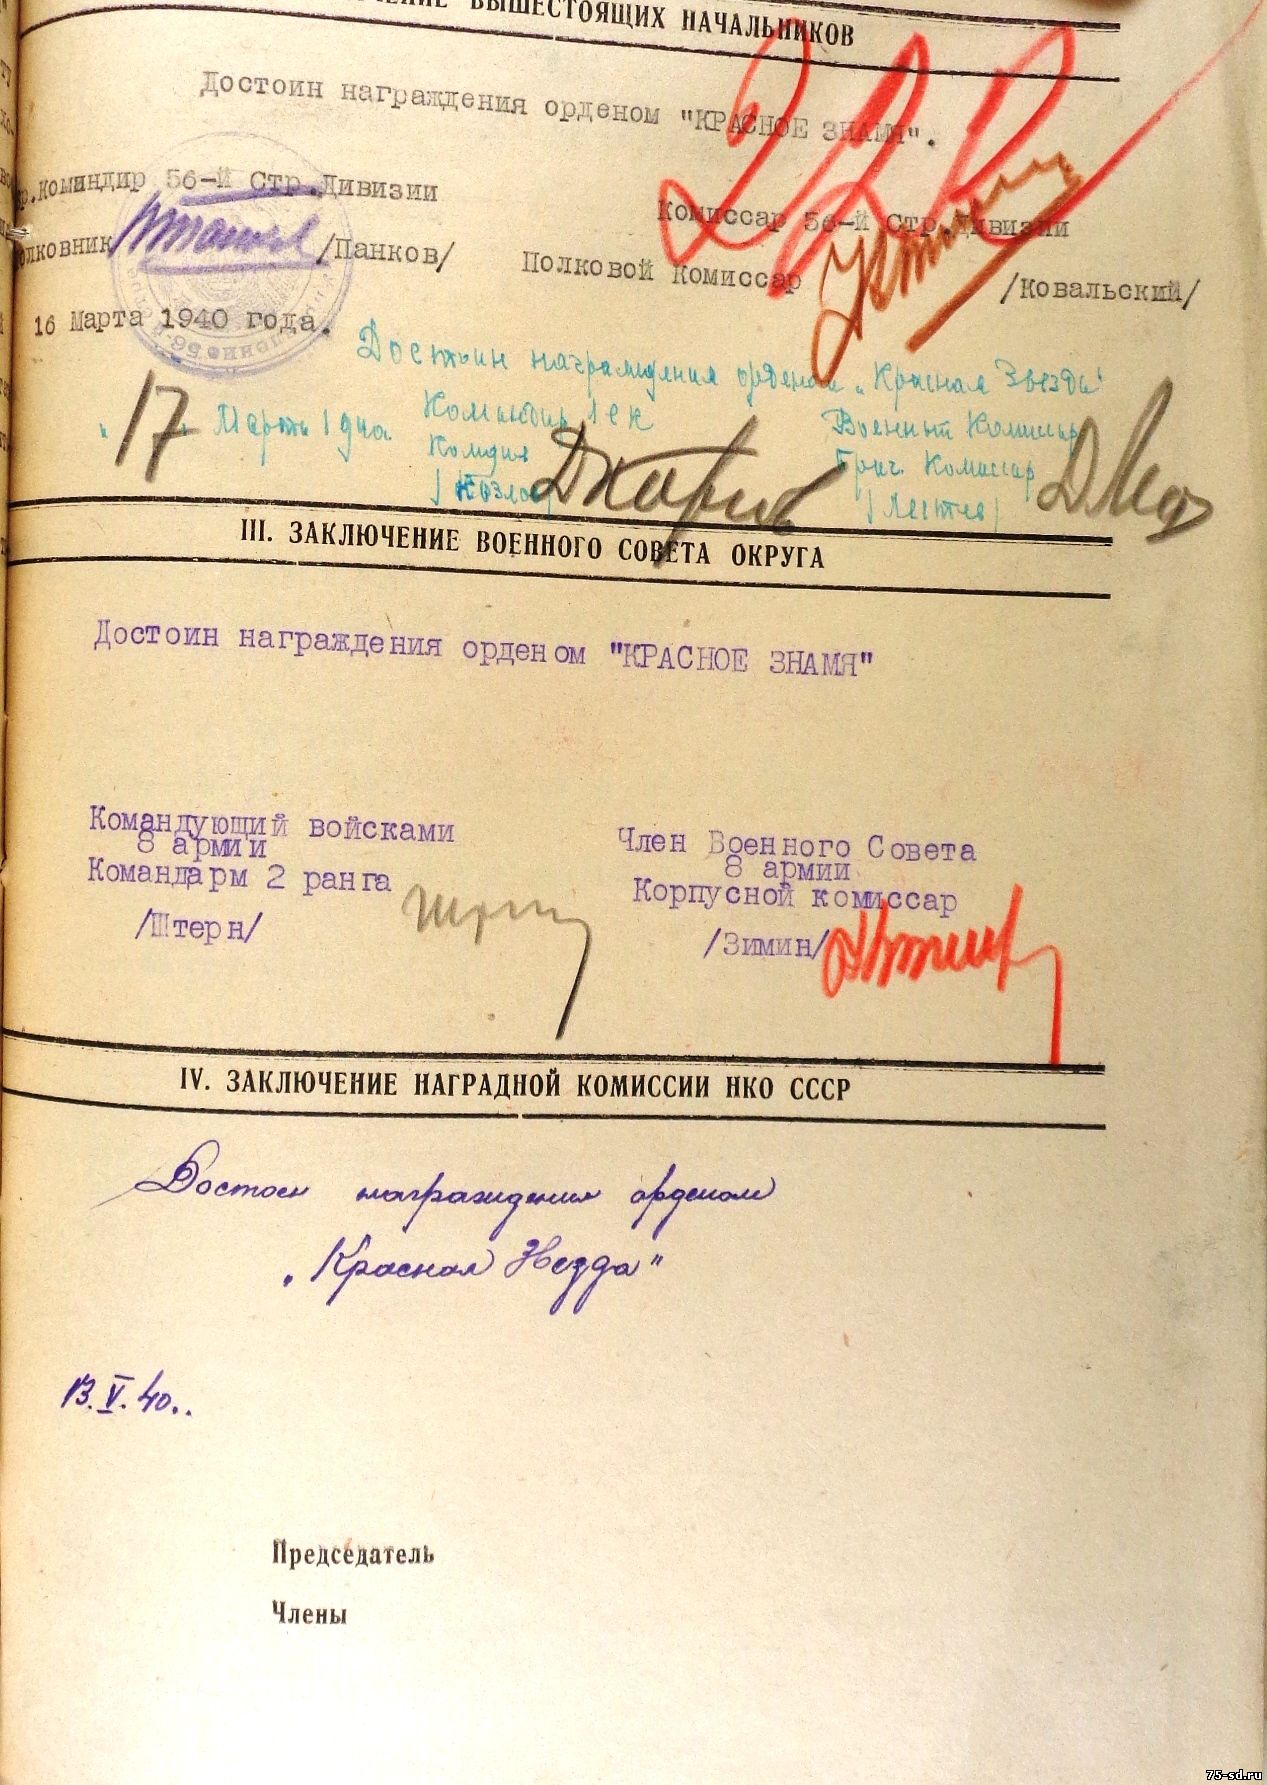 ВЫШЕСТОЯЩИХ НАЧАЛЬНИКОВ
Достоин награждения орденом "КРАСНОЕ ЗНАМЯ".
Командир 56-й Стр.Дивизии
Комиссар 56-й Стр.Дивизии
/Панков/
Полковой Комиссар
/Ковальский/
16 Марта 1940 года.
Достоин награждения орденом „Красная Звезда"
„17" Марта
Командир 1 СК
Военный Комиссар
Комдив
Бриг. Комиссар
III. ЗАКЛЮЧЕНИЕ ВОЕННОГО СОВЕТА ОКРУГА
Достоин награждения орденом "КРАСНОЕ ЗНАМЯ"
Командующий войсками
8 армии
Член Военного Совета
8 армии
Командарм 2 ранга
Корпусной комиссар
/Штерн/
/Зимин/
IV. ЗАКЛЮЧЕНИЕ НАГРАДНОЙ КОМИССИИ НКО СССР
Достоен награждения орденом
„Красная Звезда"
13.V.40..
Председатель
Члены
75-sd.ru